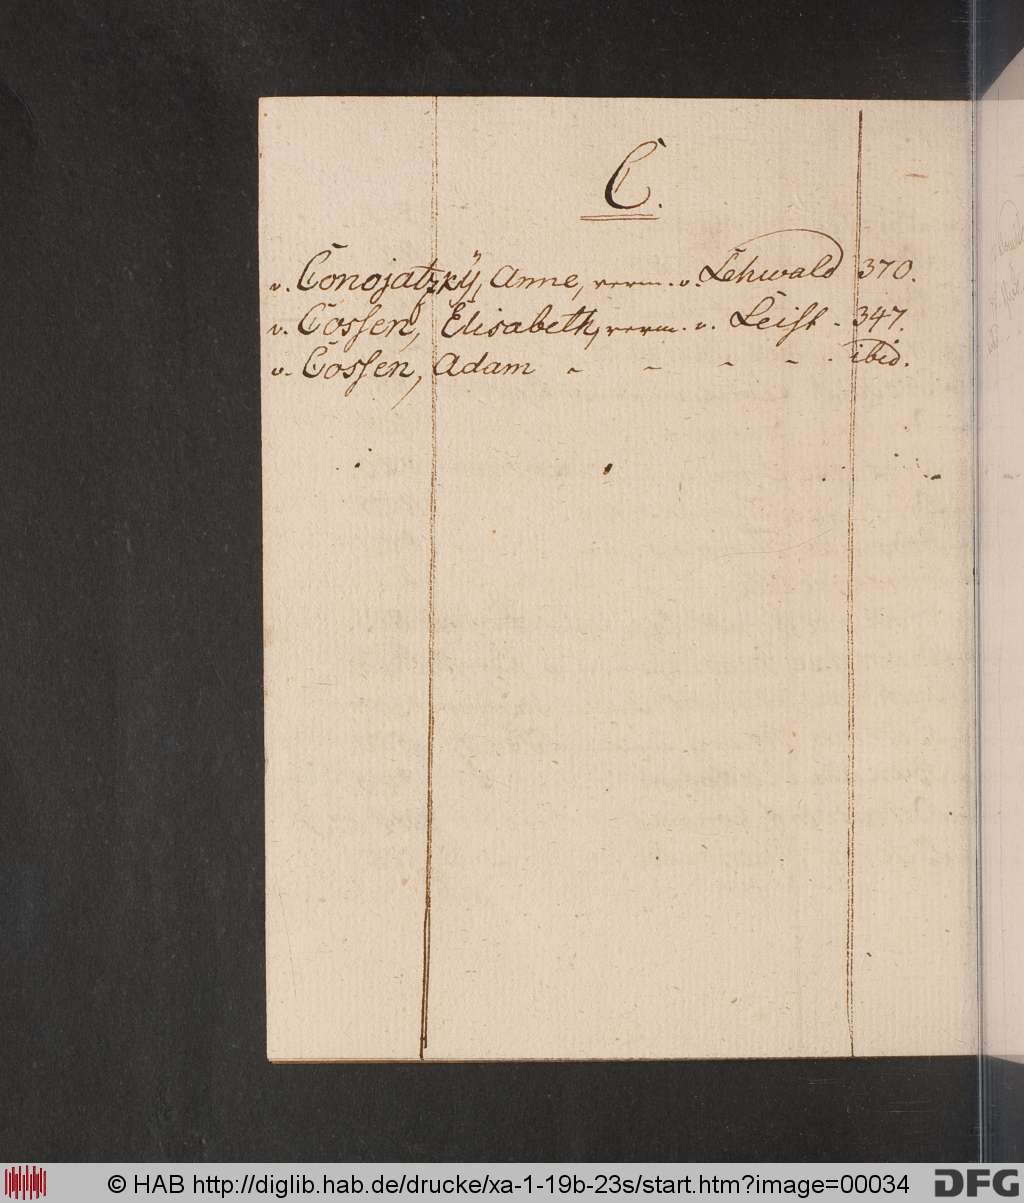 C.
v. Conojatzkÿ, Anne, verm. v. Lehwald 370.
v. Cossen, Elisabeth, verm. v. Leist - 347.
v. Cossen, Adam - - - - - ibid.
© HAB http://diglib.hab.de/drucke/xa-1-19b-23s/start.htm?image=00034
DFG